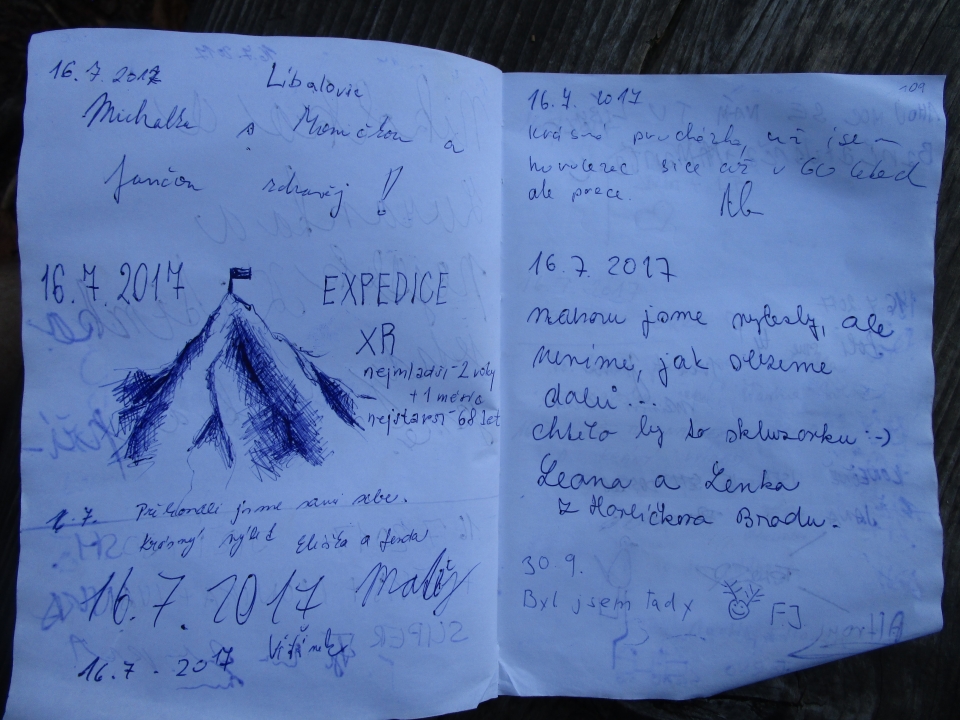 16.7.2017
Libalovic
Michalka s Moničkou a
zdravěj !!
16.7.2017
EXPEDICE
XR
nejmladší - 2 roky
+ 1 měsíc
nejstarší - 68 let
jsme sami sebe.
Krásný výlet Eliška a Jenda
16.7.2017 Matěj
16.7.2017
109
16.7.2017
Krásná procházka, už jsem
sice až v 60 letech
ale
16.7.2017
nahoru jsme vylezly, ale
nevíme, jak slezeme
dolů...
chtělo by to skluzavku :-)
Leana a Lenka
z Havlíčkova Brodu.
30.9.
Byl jsem tady FJ